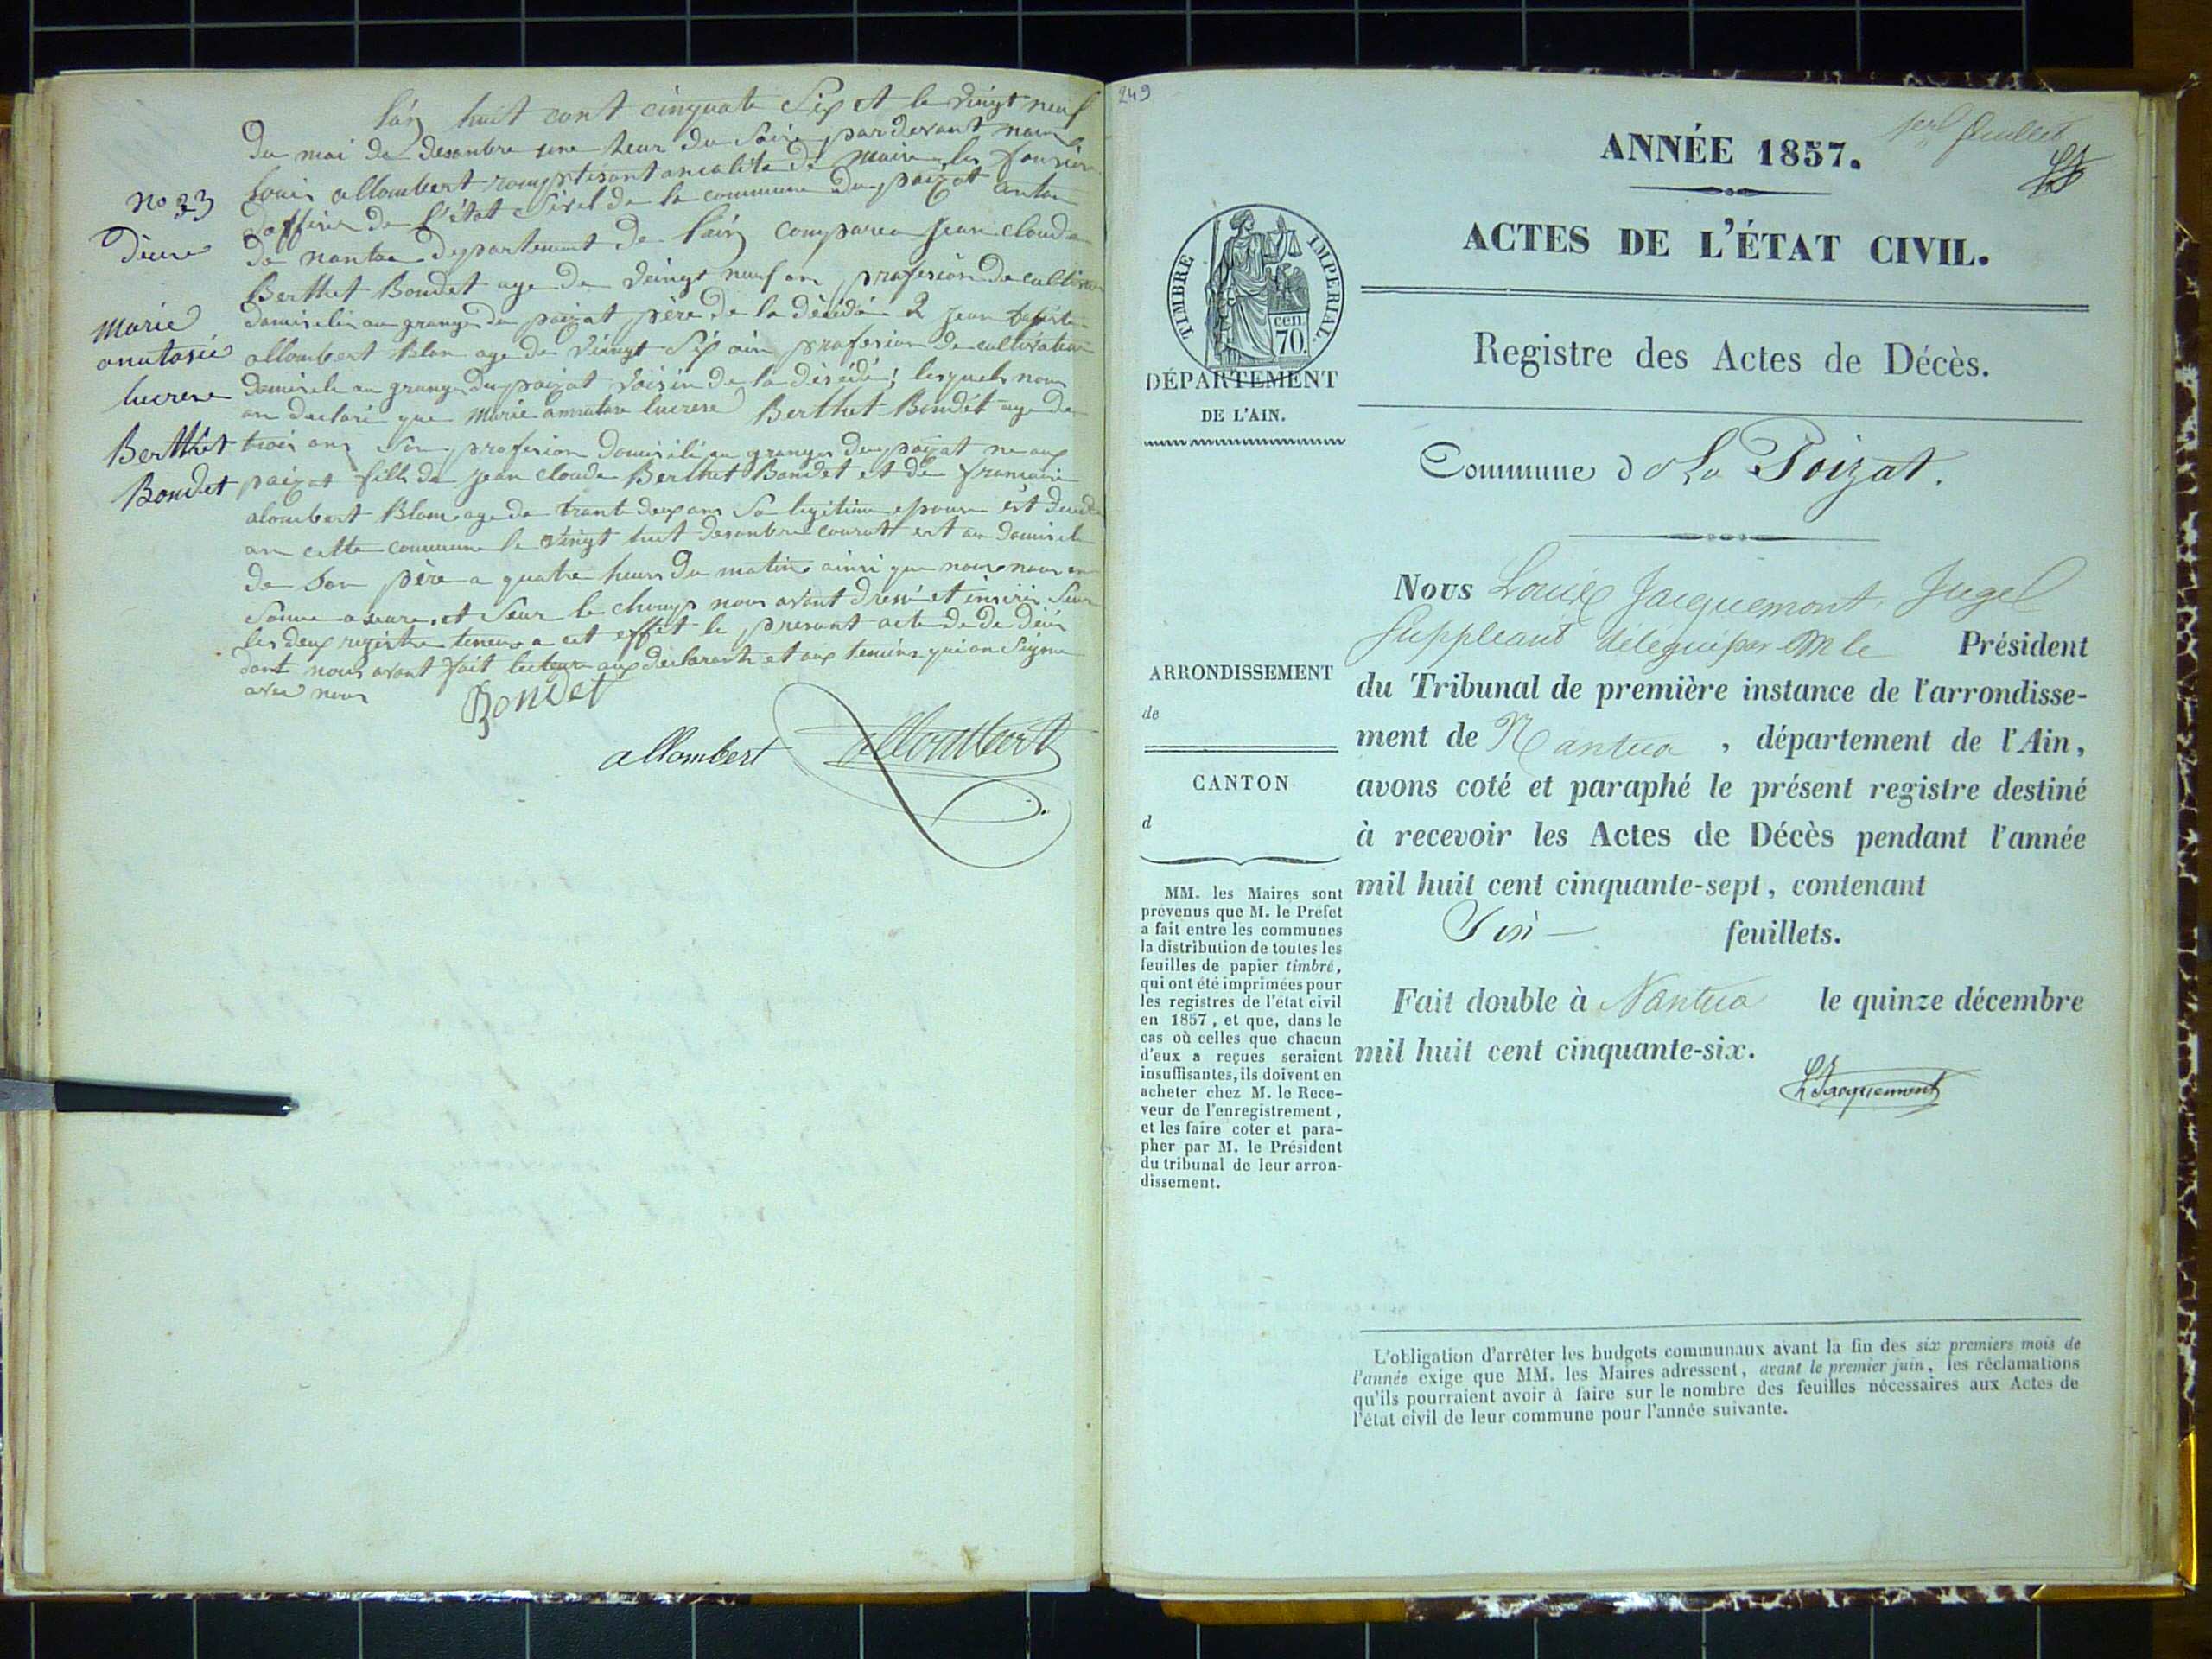 l'an huit cent cinquate Six et le vingt neuf
du moi de desanbre une heur du Soire par devant nous
Louis allombert ramplisant an calité de maire les fonsion
d'offisie de l'état Sivil de la commune du poizat canton
de nantua departement de l'ain comparu jean claude
Berthet Bondet age de veingt neuf an profesion de cultivateur
domisilié au granges du poizat père de la désédé 2 jean
allombert Blan age de vingt Six an profesion de cultivateur
domisilé au granges du poizat voisin de la désédé; lesquels nous
on declaré que Marie lucrese Berthet Bondét age de
trois ans San profesion domisilé au granges du poizat ne aux
poizat fille de jean claude Berthet Bondet et de
alombert Blanc age de trante deux ans Sa legitime epouse est
an cette commune le vingt huit desanbre courant est au domisile
de Son père a quatre heurs du matin ainsi que nous nous en
Somme et Seur le champ nous avont dresé et insérés Seur
les deux registre teneus a cet effet le presant acte de
dont nous avont fait lecteure aux déclarants et aux temoins qui on Signé
avec nous
Bondet
allombert allombert
no 33
Marie
anatasie
lucrese
Berthet
Bondet
249
feuillet
ANNÉE 1857.
ACTES DE L'ÉTAT CIVIL.
Registre des Actes de Décès.
Commune de Le Poizat.
TIMBRE IMPERIAL
cen
70.
DÉPARTEMENT
DE L'AIN.
ARRONDISSEMENT
de
CANTON
d
MM. les Maires sont
prévenus que M. le Préfet
a fait entre les communes
la distribution de toutes les
feuilles de papier timbré,
qui ont été imprimées pour
les registres de l'état civil
en 1857, et que, dans le
cas où celles que chacun
d'eux a reçues seraient
insuffisantes, ils doivent en
acheter chez M. le Rece-
veur de l'enregistrement,
et les faire coter et para-
pher par M. le Président
du tribunal de leur arron-
dissement.
Nous Louis Jacquemont, Juge
Suppleant délégué par M le Président
du Tribunal de première instance de l'arrondisse-
ment de Nantua, département de l'Ain,
avons coté et paraphé le présent registre destiné
à recevoir les Actes de Décès pendant l'année
mil huit cent cinquante-sept, contenant
Six feuillets.
Fait double à Nantua le quinze décembre
mil huit cent cinquante-six.
L Jacquemont
L'obligation d'arrêter les budgets communaux avant la fin des six premiers mois de
l'année exige que MM. les Maires adressent, avant le premier juin, les réclamations
qu'ils pourraient avoir à faire sur le nombre des feuilles nécessaires aux Actes de
l'état civil de leur commune pour l'année suivante.